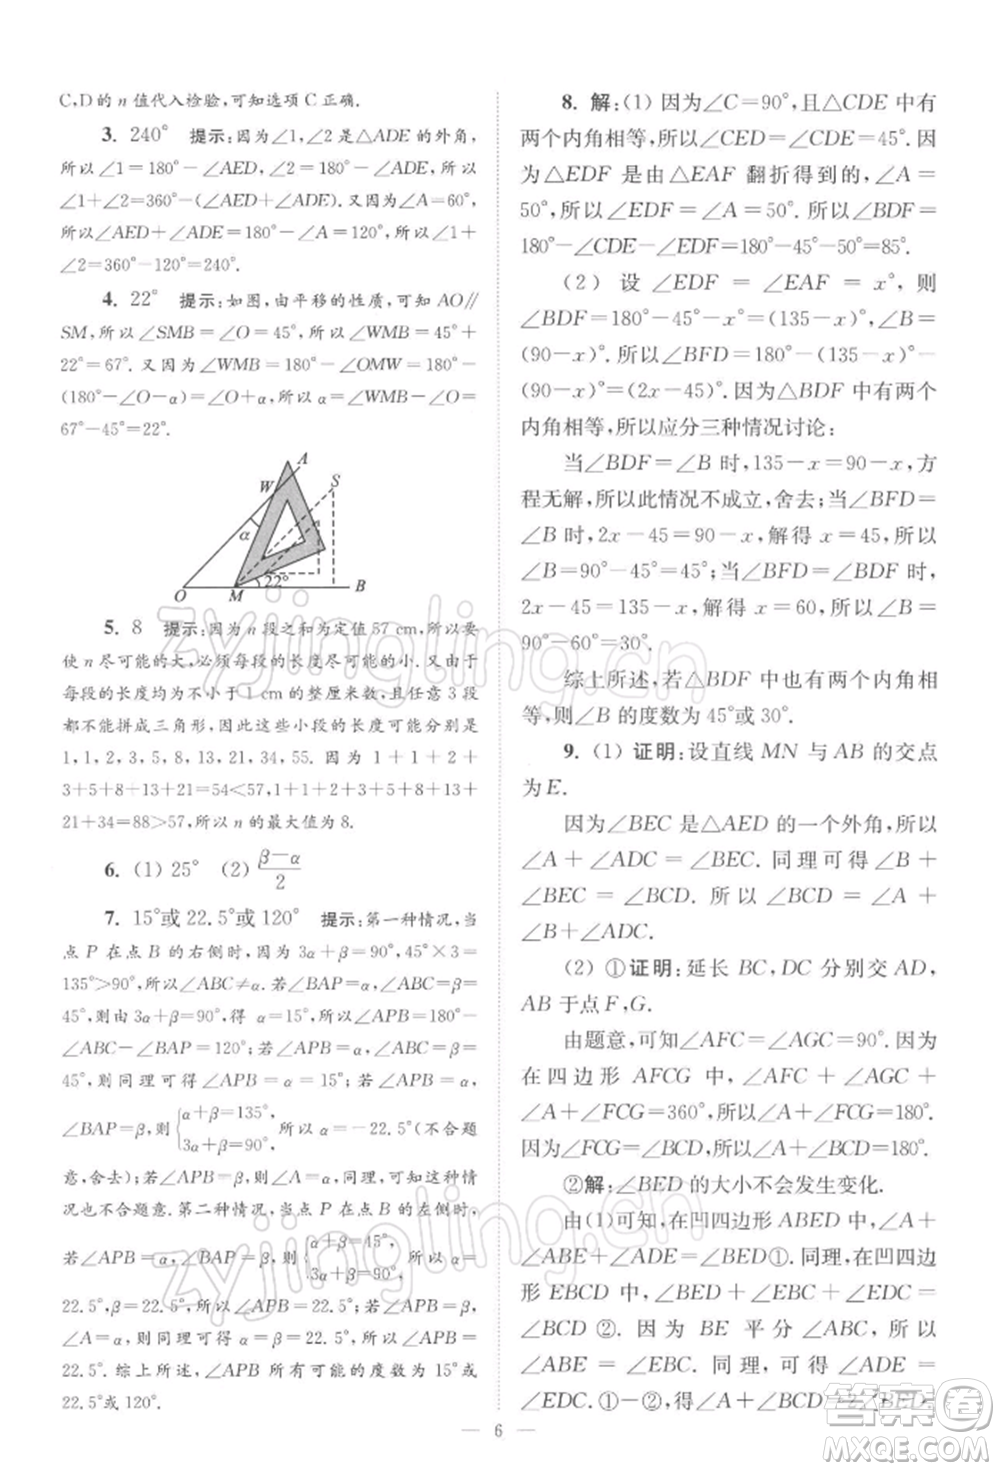 C,D的n值代入检验,可知选项C正确.
3. 240° 提示:因为∠1,∠2是△ADE的外角,
所以∠1=180°-∠AED,∠2=180°-∠ADE,所以
∠1+∠2=360°-(∠AED+∠ADE). 又因为∠A=60°,
所以∠AED+∠ADE=180°-∠A=120°,所以∠1+
∠2=360°-120°=240°.
4. 22° 提示:如图,由平移的性质,可知AO∥
SM,所以∠SMB=∠O=45°,所以∠WMB=45°+
22°=67°. 又因为∠WMB=180°-∠OMW=180°-
(180°-∠O-α)=∠O+α,所以α=∠WMB-∠O=
67°-45°=22°.
A
W
S
α
22°
O
M
B
5. 8 提示:因为n段之和为定值57 cm,所以要
使n尽可能的大,必须每段的长度尽可能的小. 又由于
每段的长度均为不小于1 cm的整厘米数,且任意3段
都不能拼成三角形,因此这些小段的长度可能分别是
1,1,2,3,5,8,13,21,34,55. 因为1+1+2+
3+5+8+13+21=54<57,1+1+2+3+5+8+13+
21+34=88>57,所以n的最大值为8.
6. (1) 25° (2) (β-α)/2
7. 15°或22.5°或120° 提示:第一种情况,当
点P在点B的右侧时,因为3α+β=90°,45°×3=
135°>90°,所以∠ABC≠α. 若∠BAP=α,∠ABC=β=
45°,则由3α+β=90°,得α=15°,所以∠APB=180°-
∠ABC-∠BAP=120°;若∠BAP=α,∠APB=β=
45°,则同理可得∠APB=15°+30°=45°;若∠APB=α,
∠BAP=β,则{α+β=135°, 3α+β=90°, 所以α=-22.5°(不合题
意,舍去);若∠APB=β,∠BAP=α,同理,可知这种情
况也不成立. 第二种情况,当点P在点B的左侧时,
若∠APB=α,∠BAP=β,则{α+β=45°, 3α+β=90°, 所以α=
22.5°,β=22.5°,所以∠APB=22.5°;若∠APB=β,
∠A=α,则同理可得α=22.5°,β=22.5°,所以∠APB=
22.5°. 综上所述,∠APB所有可能的度数为15°或
22.5°或120°.
8. 解:(1) 因为∠C=90°,且△CDE中有
两个内角相等,所以∠CED=∠CDE=45°. 因
为△EDF是由△EAF翻折得到的,∠A=
50°,所以∠EDF=∠A=50°. 所以∠BDF=
180°-∠CDE-∠EDF=180°-45°-50°=85°.
(2) 设∠EDF=∠EAF=x°,则
∠BDF=180°-45°-x°=(135-x)°,∠B=
(90-x)°. 所以∠BFD=180°-(135-x)°-
(90-x)°=(2x-45)°. 因为△BDF中有两个
内角相等,所以应分三种情况讨论:
当∠BDF=∠B时,135-x=90-x,方
程无解,所以此情况不成立,舍去;当∠BFD=
∠B时,2x-45=90-x,解得x=45,所以
∠B=90°-45°=45°;当∠BFD=∠BDF时,
2x-45=135-x,解得x=60,所以∠B=
90°-60°=30°.
综上所述,若△BDF中也有两个内角相
等,则∠B的度数为45°或30°.
9. (1) 证明:设直线MN与AB的交点
为E.
因为∠BEC是△AED的一个外角,所以
∠A+∠ADC=∠BEC. 同理可得∠B+
∠BEC=∠BCD. 所以∠BCD=∠A+
∠B+∠ADC.
(2) ①证明:延长BC,DC分别交AD,
AB于点F,G.
由题意,可知∠AFC=∠AGC=90°. 因为
在四边形AFCG中,∠A+∠AFC+∠AGC+
∠FCG=360°,所以∠A+∠FCG=180°.
因为∠FCG=∠BCD,所以∠A+∠BCD=180°.
②解:∠BED的大小不会发生变化.
由(1)可知,在凹四边形ABED中,∠A+
∠ABE+∠ADE=∠BED①. 同理,在凹四边
形EBCD中,∠BED+∠EBC+∠EDC=
∠BCD②. 因为BE平分∠ABC,所以
∠ABE=∠EBC. 同理可得∠ADE=
∠EDC. ①-②,得∠A+∠BCD=2∠BED,
6
zyjingling.cn
zyjingling.cn
答案圈
MXQE.COM